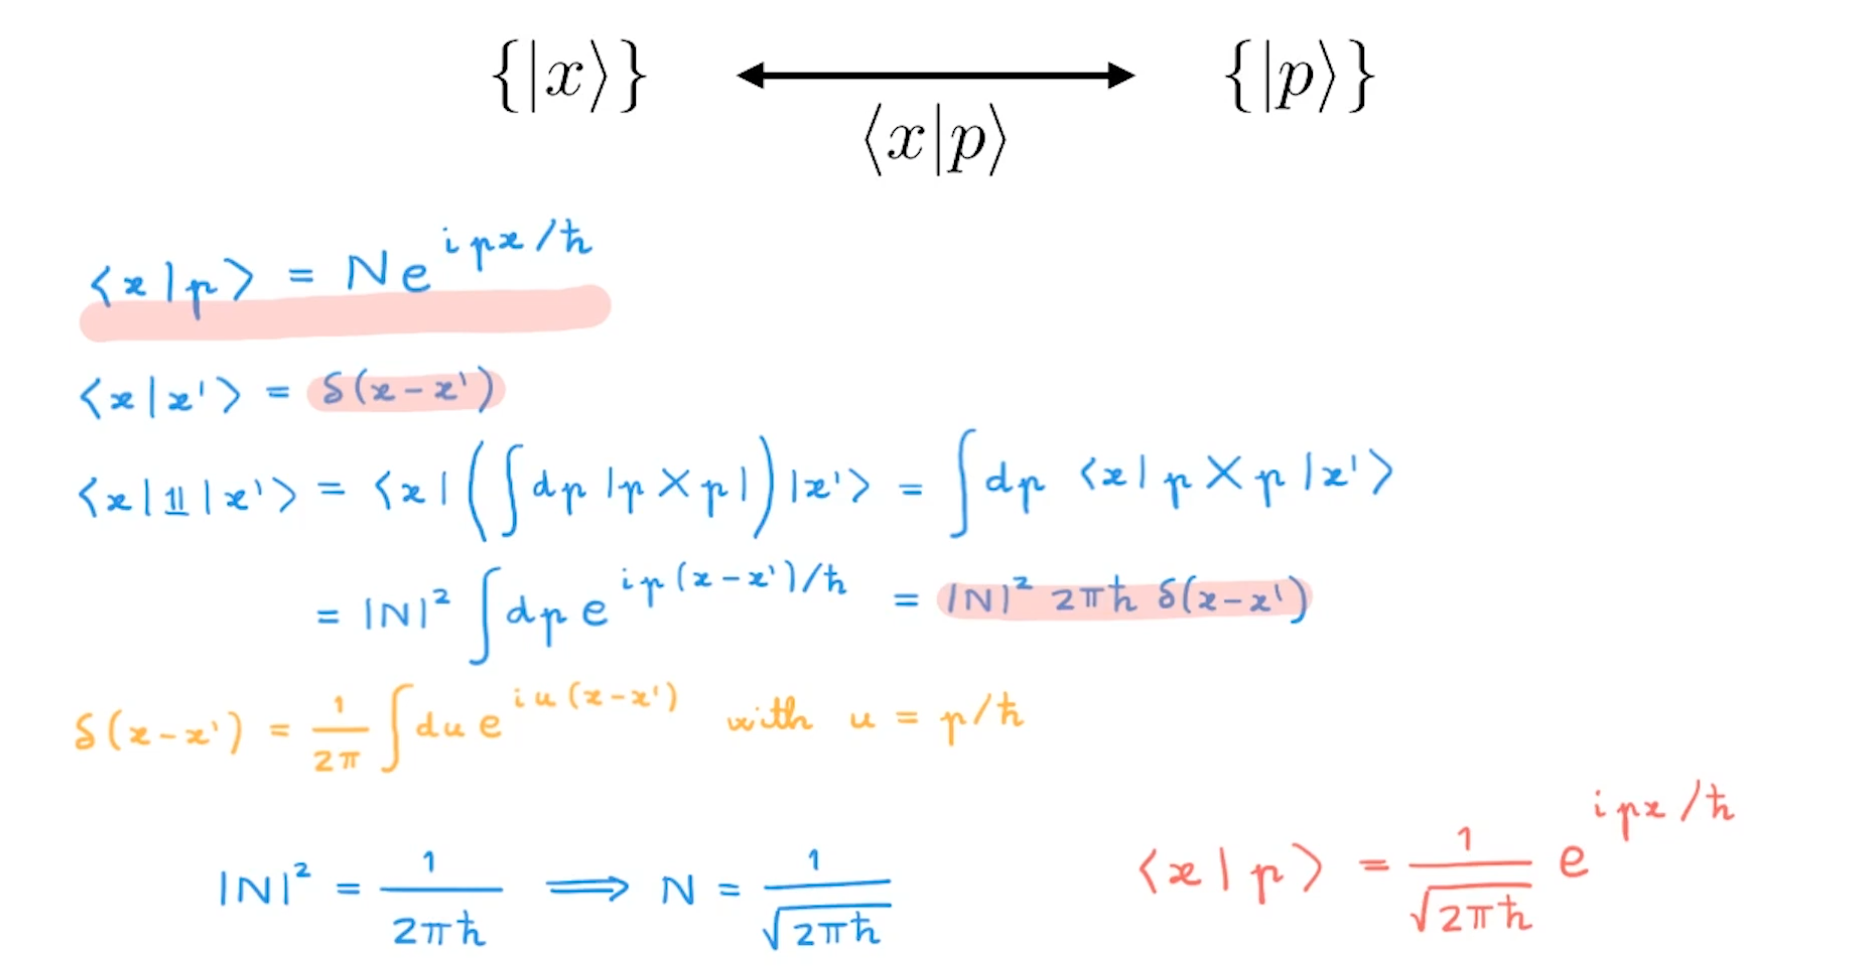 {|x⟩} ⟷ {|p⟩}
⟨x|p⟩
⟨x|p⟩ = N e^{ipx/ħ}
⟨x|x'⟩ = δ(x-x')
⟨x|𝟙|x'⟩ = ⟨x|(∫dp |p⟩⟨p|)|x'⟩ = ∫dp ⟨x|p⟩⟨p|x'⟩
= |N|² ∫dp e^{ip(x-x')/ħ} = |N|² 2πħ δ(x-x')
δ(x-x') = \frac{1}{2π} ∫du e^{iu(x-x')} with u = p/ħ
|N|² = \frac{1}{2πħ} ⟹ N = \frac{1}{\sqrt{2πħ}}
⟨x|p⟩ = \frac{1}{\sqrt{2πħ}} e^{ipx/ħ}